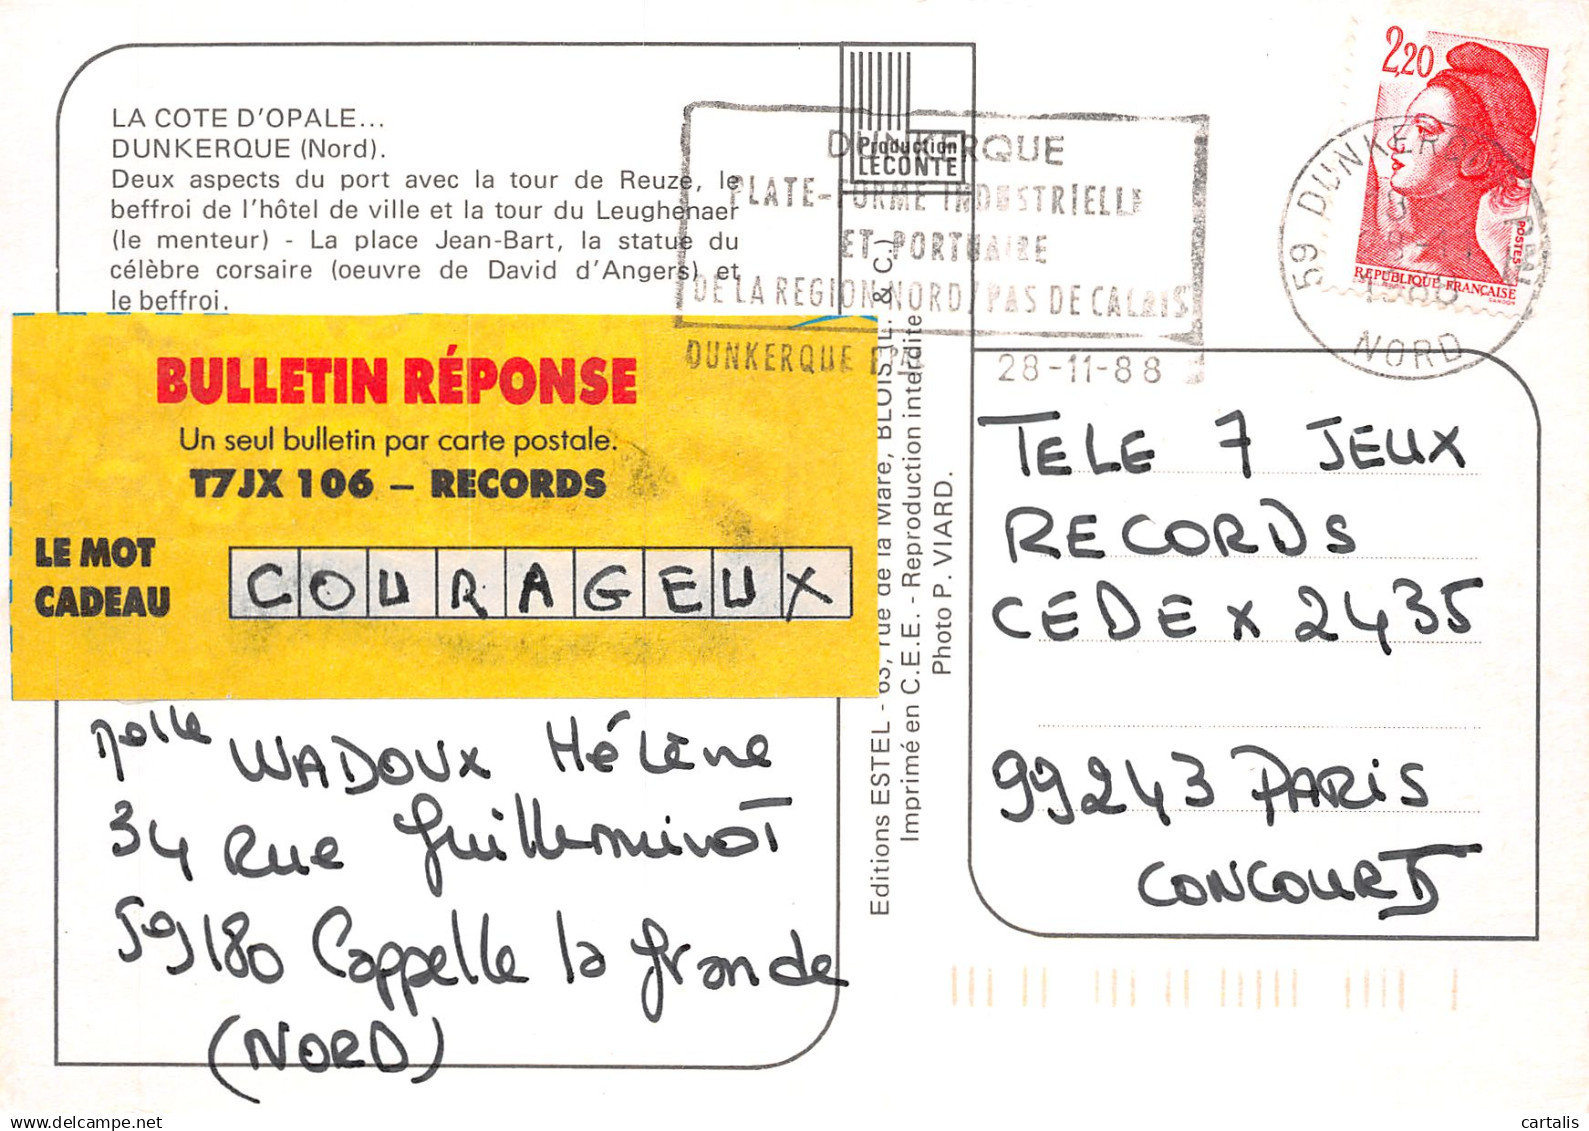 LA COTE D'OPALE...
DUNKERQUE (Nord).
Deux aspects du port avec la tour de Reuze, le
beffroi de l'hôtel de ville et la tour du Leughenaer
(le menteur) - La place Jean-Bart, la statue du
célèbre corsaire (oeuvre de David d'Angers) et
le beffroi.
Production
LECONTE
DUNKERQUE
PLATE-FORME INDUSTRIELLE
ET PORTUAIRE
DE LA REGION NORD/PAS DE CALAIS
DUNKERQUE
28-11-88
2,20
POSTES
REPUBLIQUE FRANCAISE
59 DUNKERQUE
1988
NORD
BULLETIN RÉPONSE
Un seul bulletin par carte postale.
T7JX 106 – RECORDS
LE MOT
CADEAU
COURAGEUX
Melle WADOUX Hélène
34 Rue Guilleminot
59180 Cappelle la Grande
(NORD)
Editions ESTEL - 63, rue de la Mare, BLOIS (L. & C.)
Imprimé en C.E.E. - Reproduction interdite
Photo P. VIARD.
TELE 7 JEUX
RECORDS
CEDEX 2435
99243 PARIS
CONCOURS
cartalis